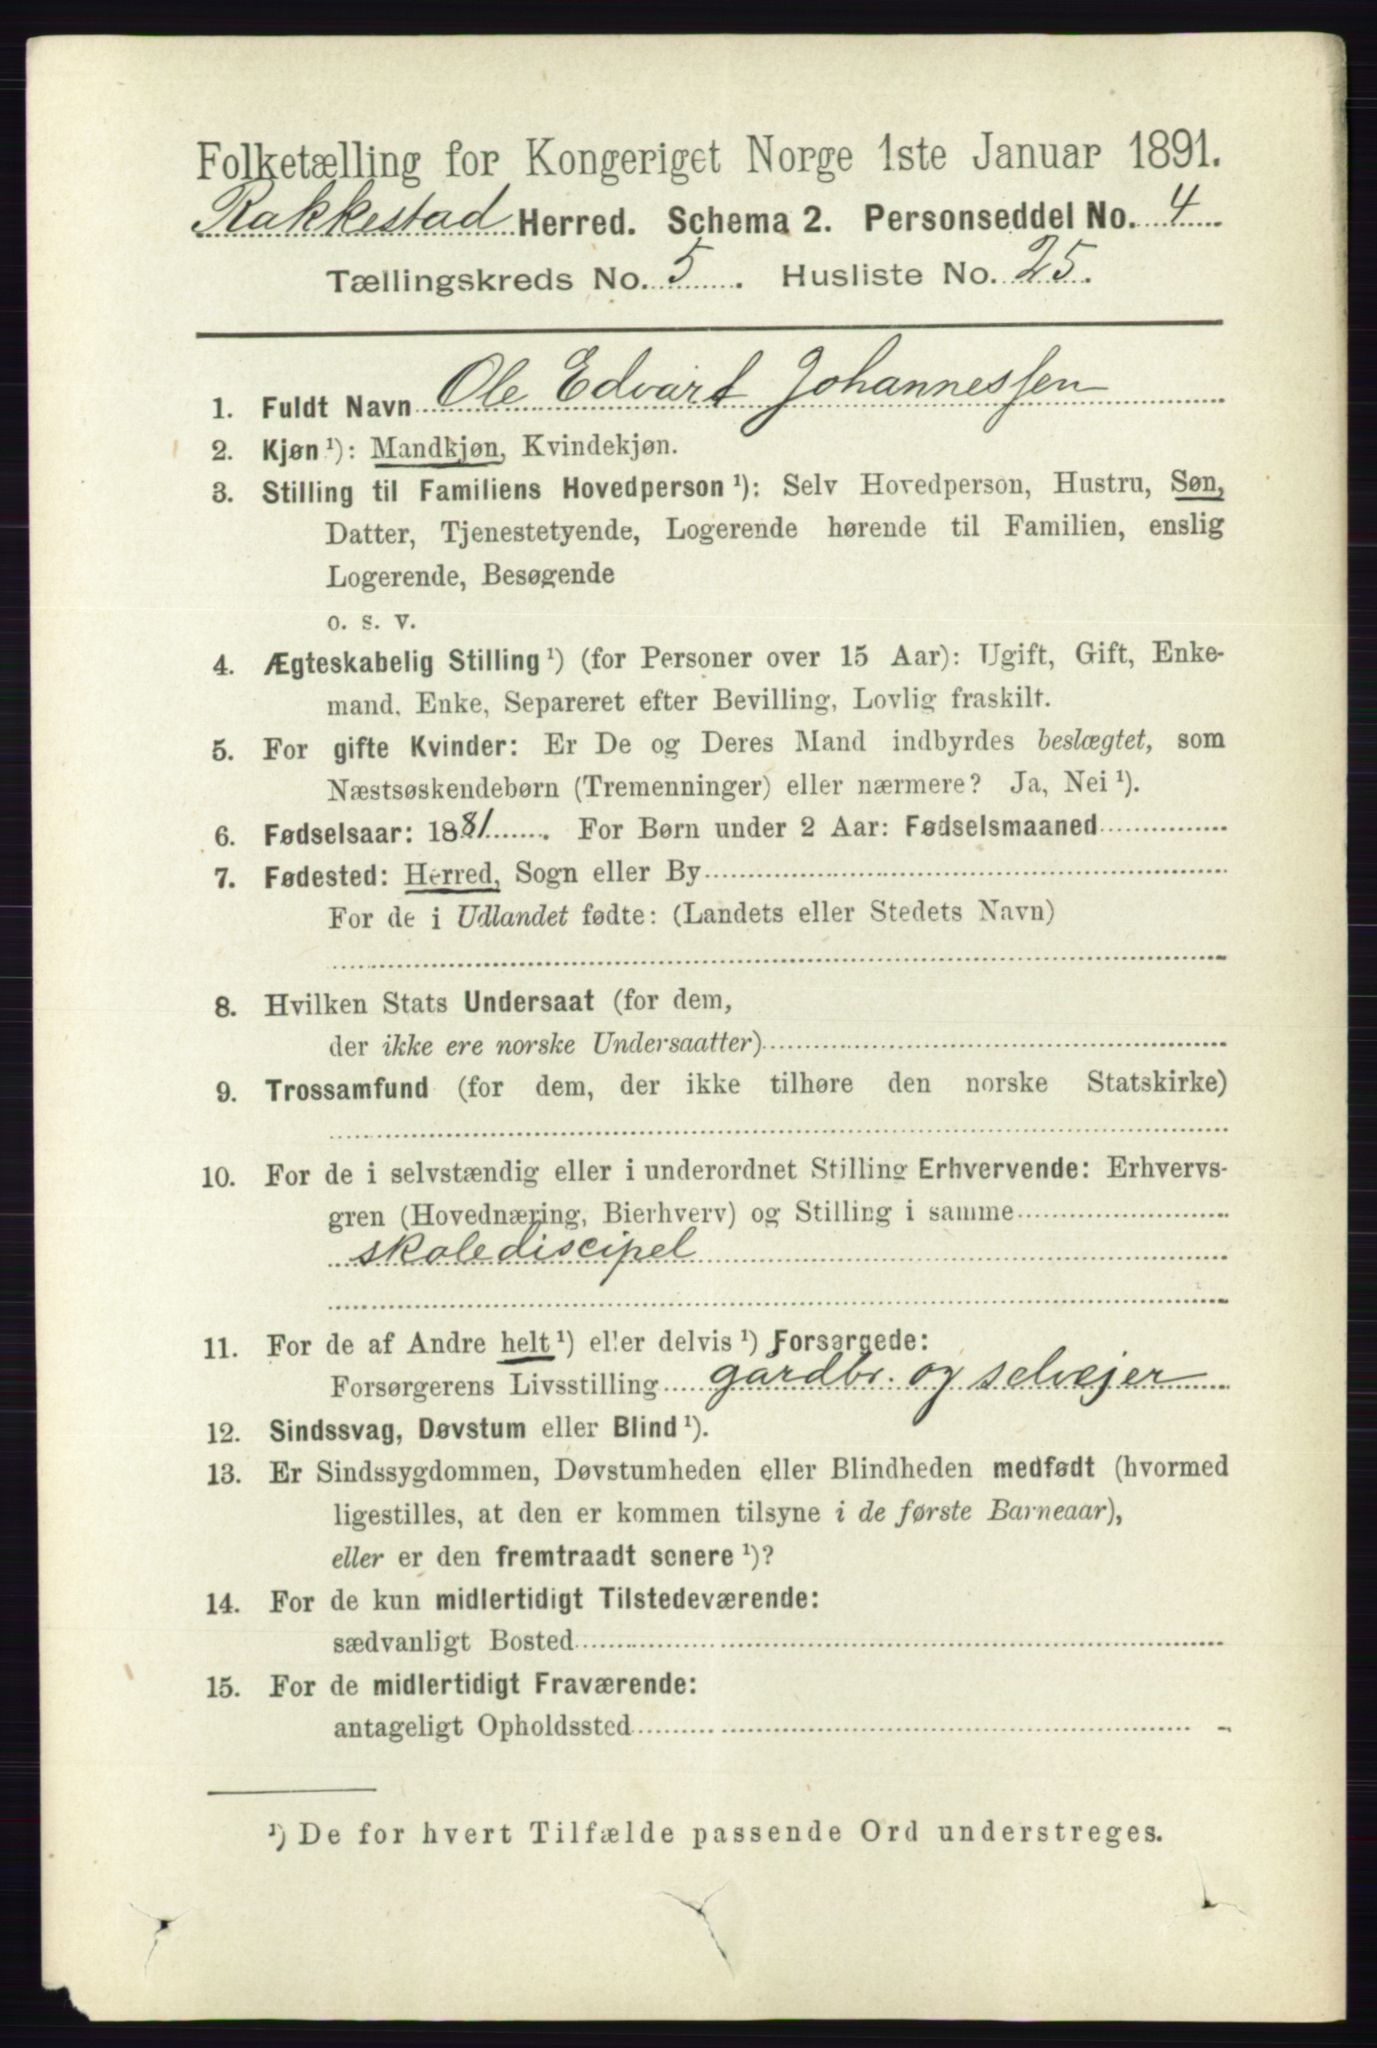 Folketælling for Kongeriget Norge 1ste Januar 1891.
Rakkestad Herred. Schema 2. Personseddel No. 4
Tællingskreds No. 5. Husliste No. 25.
1. Fuldt Navn Ole Edvart Johannessen
2. Kjøn ¹): Mandkjøn, Kvindekjøn.
3. Stilling til Familiens Hovedperson ¹): Selv Hovedperson, Hustru, Søn,
Datter, Tjenestetyende, Logerende hørende til Familien, enslig
Logerende, Besøgende
o. s. v.
4. Ægteskabelig Stilling ¹) (for Personer over 15 Aar): Ugift, Gift, Enke-
mand, Enke, Separeret efter Bevilling, Lovlig fraskilt.
5. For gifte Kvinder: Er De og Deres Mand indbyrdes beslægtet, som
Næstsøskendebørn (Tremenninger) eller nærmere? Ja, Nei ¹).
6. Fødselsaar: 1881. For Børn under 2 Aar: Fødselsmaaned
7. Fødested: Herred, Sogn eller By
For de i Udlandet fødte: (Landets eller Stedets Navn)
8. Hvilken Stats Undersaat (for dem,
der ikke ere norske Undersaatter)
9. Trossamfund (for dem, der ikke tilhøre den norske Statskirke)
10. For de i selvstændig eller i underordnet Stilling Erhvervende: Erhvervs-
gren (Hovednæring, Bierhverv) og Stilling i samme
skolediscipel
11. For de af Andre helt ¹) eller delvis ¹) Forsørgede:
Forsørgerens Livsstilling gardbr. og selvejer
12. Sindssvag, Døvstum eller Blind ¹).
13. Er Sindssygdommen, Døvstumheden eller Blindheden medfødt (hvormed
ligestilles, at den er kommen tilsyne i de første Barneaar),
eller er den fremtraadt senere ¹)?
14. For de kun midlertidigt Tilstedeværende:
sædvanligt Bosted
15. For de midlertidigt Fraværende:
antageligt Opholdssted
¹) De for hvert Tilfælde passende Ord understreges.